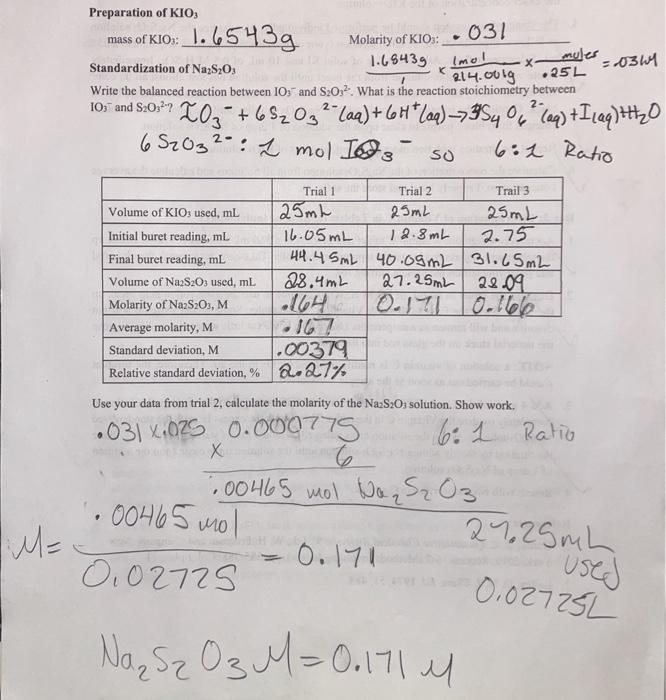 Preparation of KIO3
mass of KIO3: 1.6543g Molarity of KIO3: .031
1.6543g × 1mol / 214.001g × moles / .25L = .031M
Standardization of Na2S2O3
Write the balanced reaction between IO3- and S2O3²-. What is the reaction stoichiometry between
IO3- and S2O3²-? IO3- + 6S2O3²-(aq) + 6H+(aq) → 3S4O6²-(aq) + I(aq) + H2O
6 S2O3²- : 1 mol IO3- so 6:1 Ratio
Trial 1 Trial 2 Trail 3
Volume of KIO3 used, mL 25mL 25mL 25mL
Initial buret reading, mL 16.05mL 12.8mL 2.75
Final buret reading, mL 44.45mL 40.05mL 31.65mL
Volume of Na2S2O3 used, mL 28.4mL 27.25mL 28.09
Molarity of Na2S2O3, M .164 0.171 0.166
Average molarity, M .167
Standard deviation, M .00379
Relative standard deviation, % 2.27%
Use your data from trial 2, calculate the molarity of the Na2S2O3 solution. Show work.
.031 x .025 0.000775 6:1 Ratio
x 6
.00465 mol Na2S2O3
M = .00465 mol / 0.02725 = 0.171
27.25mL
used
0.02725L
Na2S2O3 M = 0.171 M